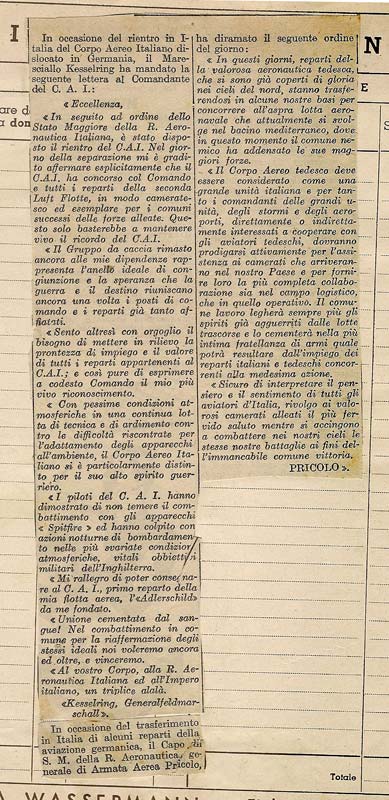 I
N
E
In occasione del rientro in I-
talia del Corpo Aereo Italiano di-
slocato in Germania, il Mare-
sciallo Kesselring ha mandato la
seguente lettera al Comandante
del C. A. I.:
« Eccellenza,
« In seguito ad ordine dello
Stato Maggiore della R. Aero-
nautica Italiana, è stato dispo-
sto il rientro del C.A.I. Nel gior-
no della separazione mi è gradi-
to affermare esplicitamente che il
C.A.I. ha concorso col Comando
e tutti i reparti della seconda
Luft Flotte, in modo camerate-
sco ed esemplare per i comuni
successi delle forze alleate. Que-
sto solo basterebbe a mantenere
vivo il ricordo del C.A.I.
« Il Gruppo da caccia rimasto
ancora alle mie dipendenze rap-
presenta l'anello ideale di con-
giunzione e la speranza che la
guerra e il destino riuniscano
ancora una volta i posti di co-
mando e i reparti già tanto af-
fiatati.
« Sento altresì con orgoglio il
bisogno di mettere in rilievo la
prontezza di impiego e il valore
di tutti i reparti appartenenti al
C.A.I.; e così pure di esprimere
a codesto Comando il mio più
vivo riconoscimento.
« Con pessime condizioni at-
mosferiche in una continua lot-
ta di tecnica e di ardimento con-
tro le difficoltà riscontrate per
l'adattamento degli apparecchi
all'ambiente, il Corpo Aereo Ita-
liano si è particolarmente distin-
to per il suo alto spirito guer-
riero.
« I piloti del C. A. I. hanno
dimostrato di non temere il com-
battimento con gli apparecchi
« Spitfire » ed hanno colpito con
azioni notturne di bombardamen-
to nelle più svariate condizioni
atmosferiche, vitali obbiettivi
militari dell'Inghilterra.
« Mi rallegro di poter consegna-
re al C. A. I., primo reparto della
mia flotta aerea, l'«Adlerschild»
da me fondato.
« Unione cementata dal san-
gue! Nel combattimento in co-
mune per la riaffermazione degli
stessi ideali noi voleremo ancora
ed oltre, e vinceremo.
« Al vostro Corpo, alla R. Ae-
ronautica Italiana ed all'Impero
italiano, un triplice alalà.
«Kesselring, Generalfeldmar-
schall».
In occasione del trasferimento
in Italia di alcuni reparti della
aviazione germanica, il Capo di
S. M. della R. Aeronautica, ge-
nerale di Armata Aerea Pricolo,
ha diramato il seguente ordine
del giorno:
« In questi giorni, reparti del-
la valorosa aeronautica tedesca,
che si sono già coperti di gloria
nei cieli del nord, stanno trasfe-
rendosi in alcune nostre basi per
concorrere all'aspra lotta aero-
navale che attualmente si svol-
ge nel bacino mediterraneo, dove
in questo momento il comune ne-
mico ha addensato le sue mag-
giori forze.
« Il Corpo Aereo tedesco deve
essere considerato come una
grande unità italiana e per tan-
to i comandanti delle grandi u-
nità, degli stormi e degli aero-
porti, direttamente o indiretta-
mente interessati a cooperare con
gli aviatori tedeschi, dovranno
prodigarsi attivamente per l'assi-
stenza ai camerati che arriveran-
no nel nostro Paese e per forni-
re loro la più completa collabora-
zione sia nel campo logistico,
che in quello operativo. Il comu-
ne lavoro legherà sempre più gli
spiriti già agguerriti dalle lotte
trascorse e lo cementerà nella più
intima fratellanza di armi quale
potrà resultare dall'impiego dei
reparti italiani e tedeschi concor-
renti alla medesima azione.
« Sicuro di interpretare il pen-
siero e il sentimento di tutti gli
aviatori d'Italia, rivolgo ai valo-
rosi camerati alleati il più fer-
vido saluto mentre si accingono
a combattere nei nostri cieli le
stesse nostre battaglie ai fini del-
l'immancabile comune vittoria.
PRICOLO ».
Totale
WASSERMANN